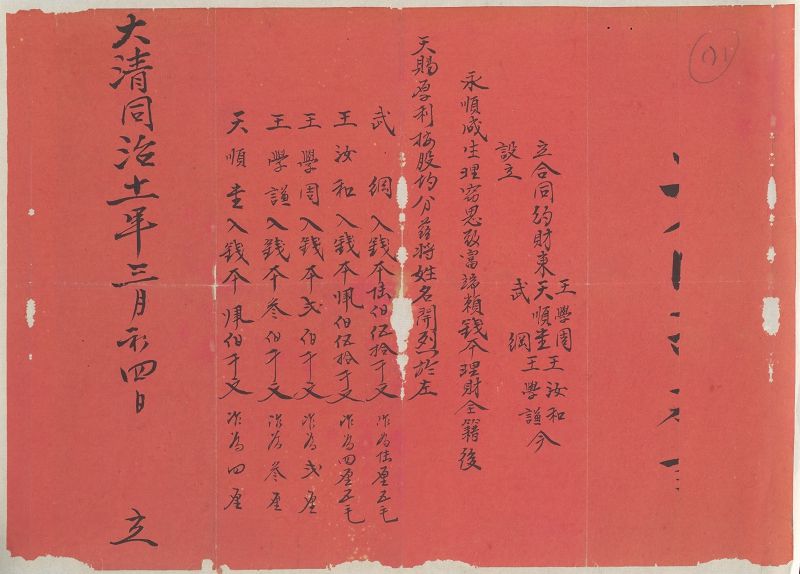 立合同約財東 王學周 天順堂 武綱 王汝和 王學謙 今
設立
永順咸生理窃思致富諦賴錢本理財全籍後
天賜厚利按股均分茲將姓名開列於左
武綱入錢本陸伯伍拾千文 作為陸厘五毛
王汝和入錢本肆伯伍拾千文 作為四厘五毛
王學周入錢本弍伯千文 作為弍厘
王學謙入錢本叁伯千文 作為叁厘
天順堂入錢本肆伯千文 作為四厘
大清同治十一年三月初四日 立